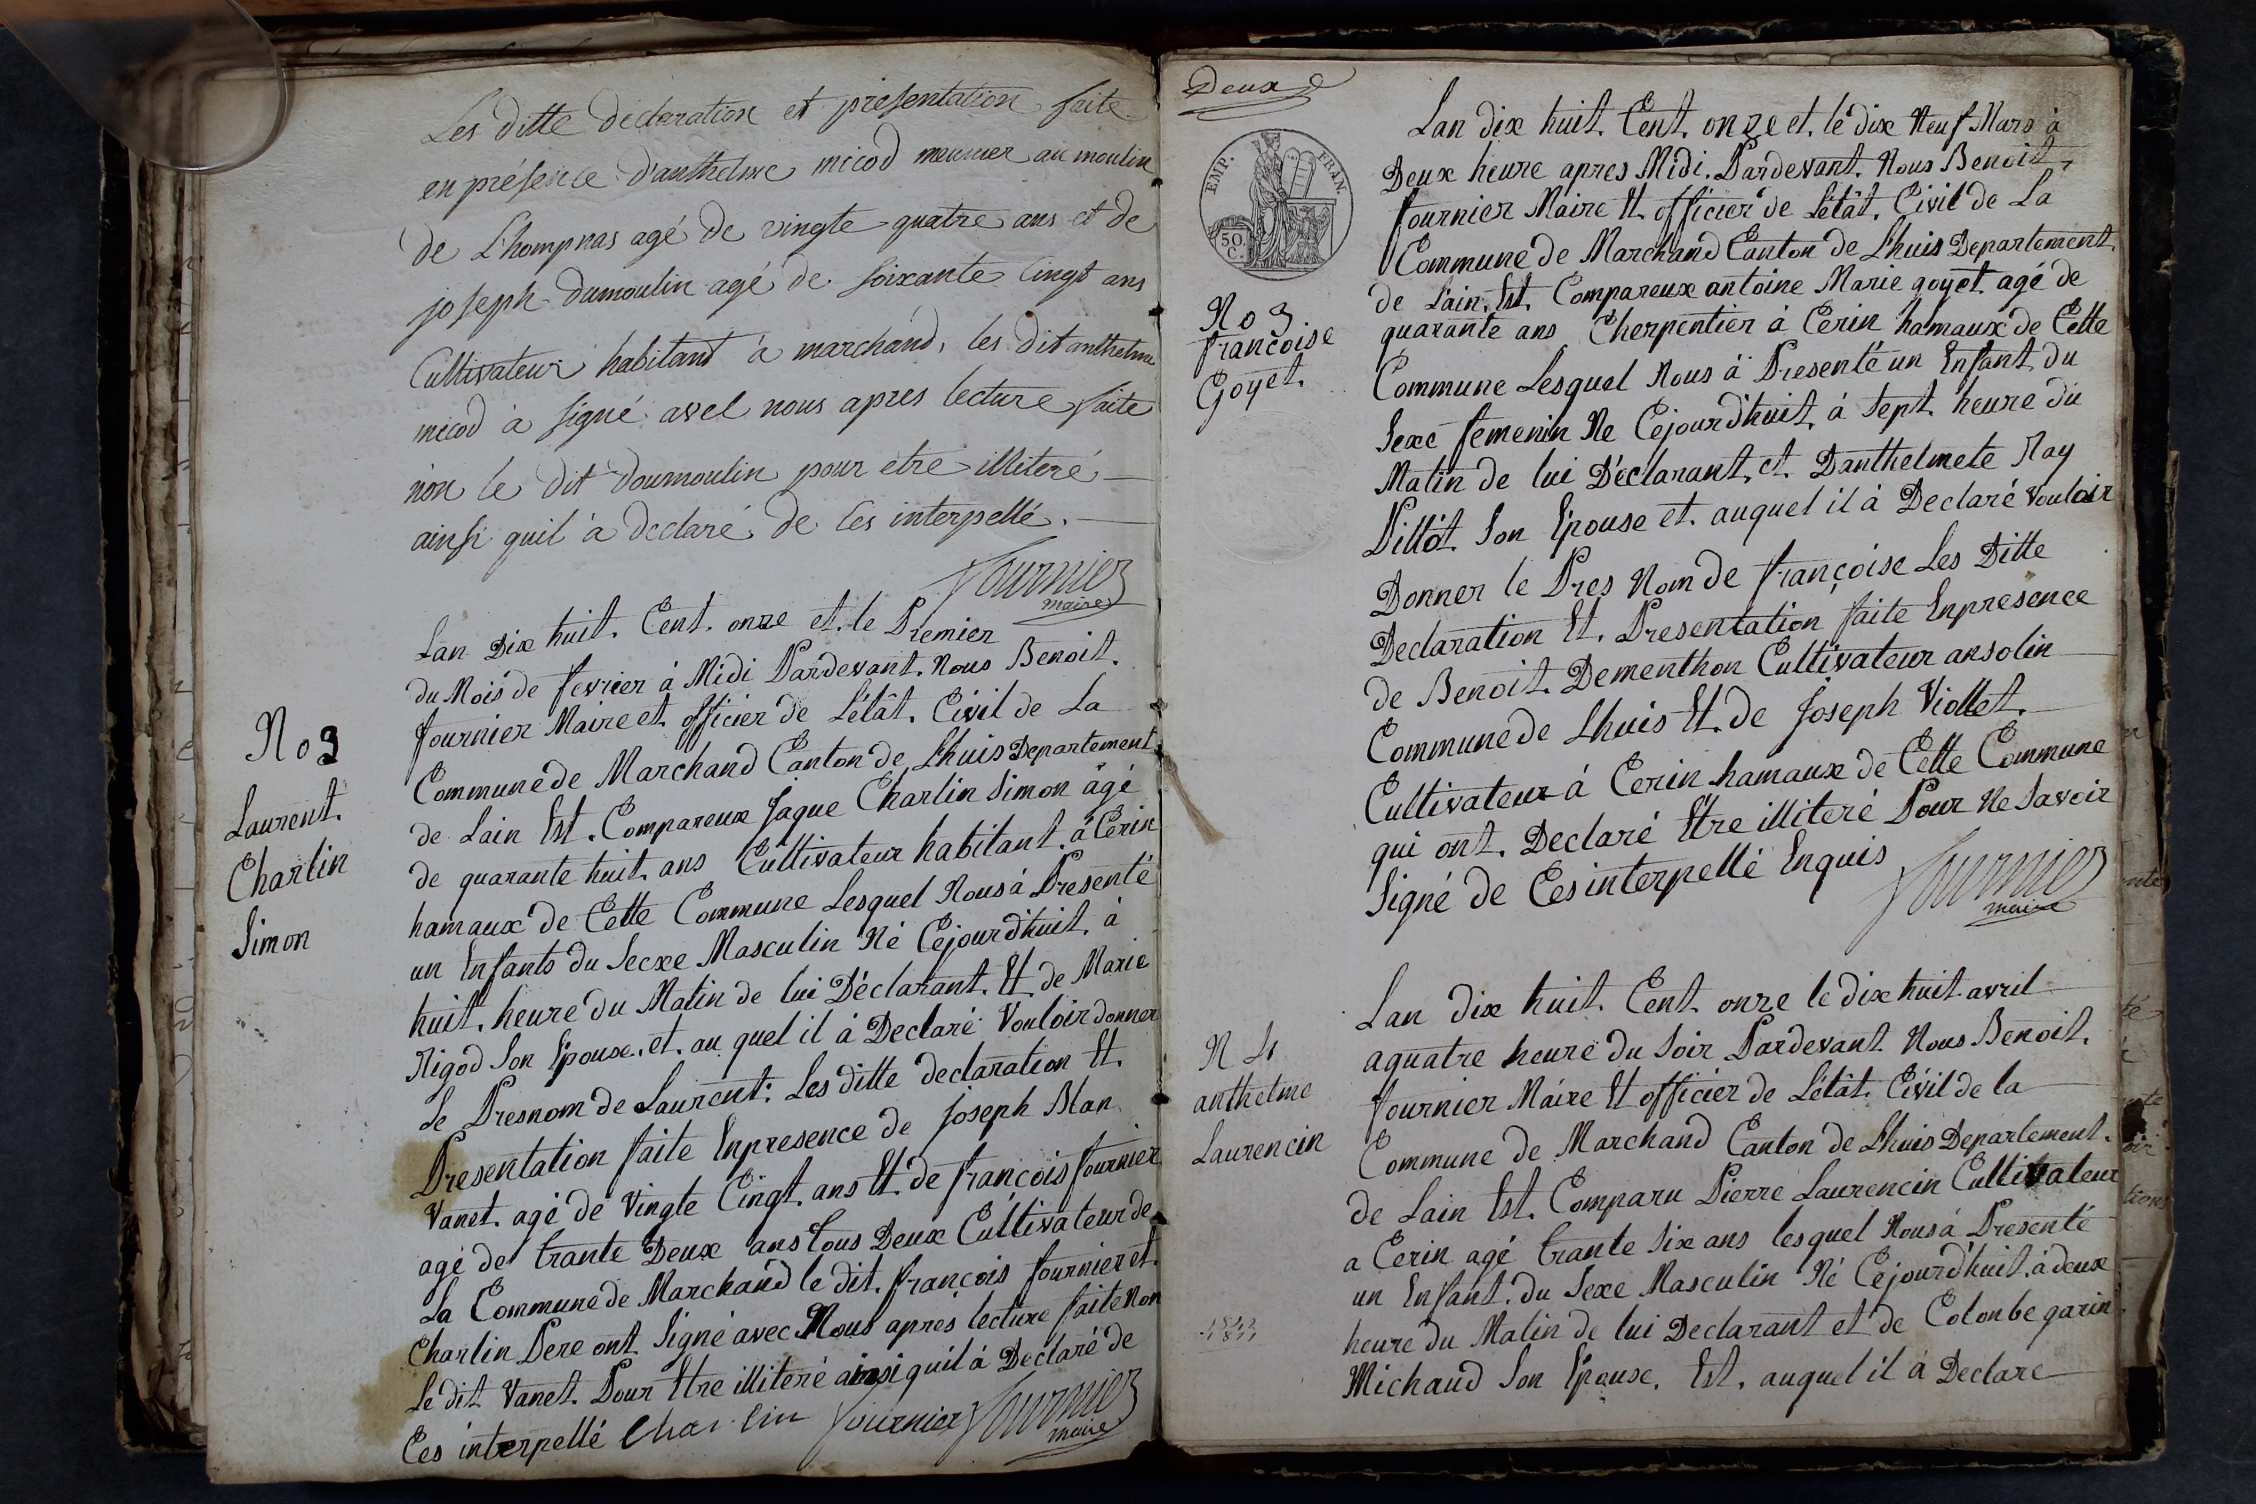 Les ditte déclaration et présentation faite
en présence d'anthelme micod meunier au moulin
de Lhompnas agé de vingte quatre ans et de
joseph dumoulin agé de soixante cinqt ans
Cultivateur habitant à marchand, les dit anthelme
micod à signé avel nous apres lecture faite
nòn le dit doumoulin pour etre illiteré
ainsi quil à declaré de ces interpellé.
fournier
maire
No 3
Laurent
Charlin
Simon
Lan Dix huit. Cent. onze et. le Premier
du Mois de fevrier à Midi Pardevant. Nous Benoit.
fournier Maire et officier de Létât. Civil de La
Commune de Marchand Canton de Lhuis Departement
de Lain Est. Compareux Jaque Charlin Simon âgé
de quarante huit ans Cultivateur habitant. à Cerin
hamaux de Cette Commune Lesquel Nous à Presenté
un Enfants du Secxe Masculin Né Cejourdhuit. à
huit. heure du Matin de lui Déclarant. Et de Marie
Rigod Son Epouse. et. au quel il à Declaré Vouloir donner
Le Presnom de Laurent: Les ditte declaration Et.
Presentation faite Enpresence de joseph Blan
Vanet. agé de Vingte Cinqt. ans Et de françois fournier
agé de trante Deux ans tous Deux Cultivateur de
La Commune de Marchand le dit. françois fournier et.
Charlin Pere ont Signé avec Nous apres lecture faite Non
Le dit Vanet. Pour Etre illiteré ainsi quil à Declaré de
Ces interpellé Charlin fournier fournier
maire
Deux
EMP. FRAN.
50
C.
No 3
francoise
Goyet.
Lan dix huit. Cent. onze et. le dix Neuf Mars à
Deux heure apres Midi. Pardevant. Nous Benoit
fournier Maire Et officier de Létât. Civil de La
Commune de Marchand Canton de Lhuis Departement
de Lain. Est. Compareux antoine Marie goyet agé de
quarante ans Cherpentier à Cerin hamaux de Cette
Commune Lesquel Nous à Presenté un Enfant du
Sexe femenin Ne Cejourd'huit. à Sept. heure du
Matin de lui Déclarant, et. Danthelmete Ray
Pillôt Son Epouse et. auquel il à Declaré Vouloir
Donner le Pres Nom de françoise Les Ditte
Declaration Et. Presentation faite Enpresence
de Benoit. Dementhon Cultivateur ansolin
Commune de Lhuis Et. de Joseph Viollet.
Cultivateur à Cerin hamaux de Cette Commune
qui ont. Declaré Etre illiteré Pour Ne Savoir
Signé de Ces interpellé Enquis
fournier
maire
N 4
anthelme
Laurencin
Lan dix huit. Cent onze le dix huit avril
aquatre heure du Soir Pardevant Nous Benoit.
fournier Maire Et officier de Létât. Civil de la
Commune de Marchand Canton de Lhuis Departement.
de Lain Est. Comparu Pierre Laurencin Cultivateur
a Cerin agé trante Six ans lesquel Nous à Presenté
un Enfant. du Sexe Masculin Né Cejourd'huit. à deux
heure du Matin de lui Declarant et de Colonbe garin
Michaud Son Epouse. Est. auquel il à Declare
1811